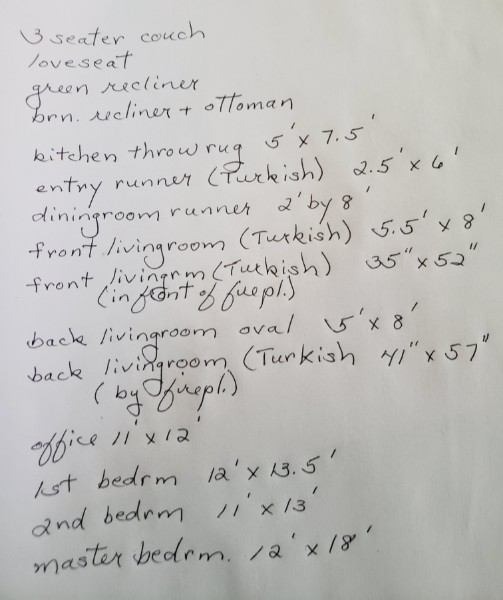 3 seater couch
loveseat
green recliner
brn. recliner + ottoman
kitchen throw rug 5' x 7.5'
entry runner (Turkish) 2.5' x 6'
diningroom runner 2' by 8'
front livingroom (Turkish) 5.5' x 8'
front livingrm (Turkish) 35" x 52"
(in front of firepl.)
back livingroom oval 5' x 8'
back livingroom (Turkish 41" x 57"
(by firepl.)
office 11' x 12'
1st bedrm 12' x 13.5'
2nd bedrm 11' x 13'
master bedrm. 12' x 18'